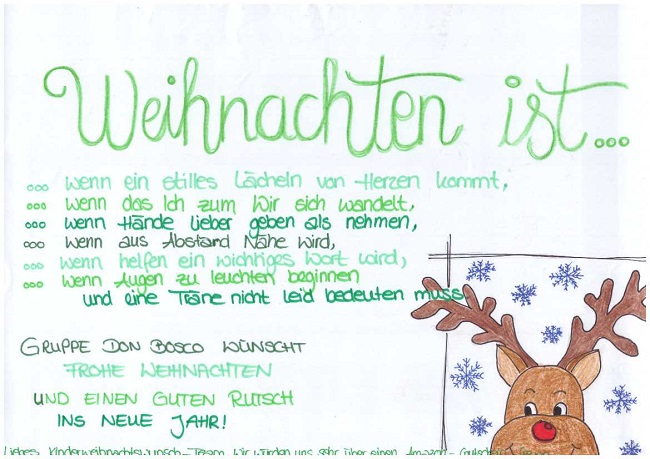 Weihnachten ist...
ooo wenn ein stilles Lächeln von Herzen kommt,
ooo wenn das Ich zum Wir sich wandelt,
ooo wenn Hände lieber geben als nehmen,
ooo wenn aus Abstand Nähe wird,
ooo wenn helfen ein wichtiges Wort wird,
ooo wenn Augen zu leuchten beginnen
und eine Träne nicht leid bedeuten muss.
GRUPPE DON BOSCO WÜNSCHT
FROHE WEIHNACHTEN
UND EINEN GUTEN RUTSCH
INS NEUE JAHR!
Liebes Kinderweihnachtswunsch-Team wir würden uns sehr über einen Amazon-